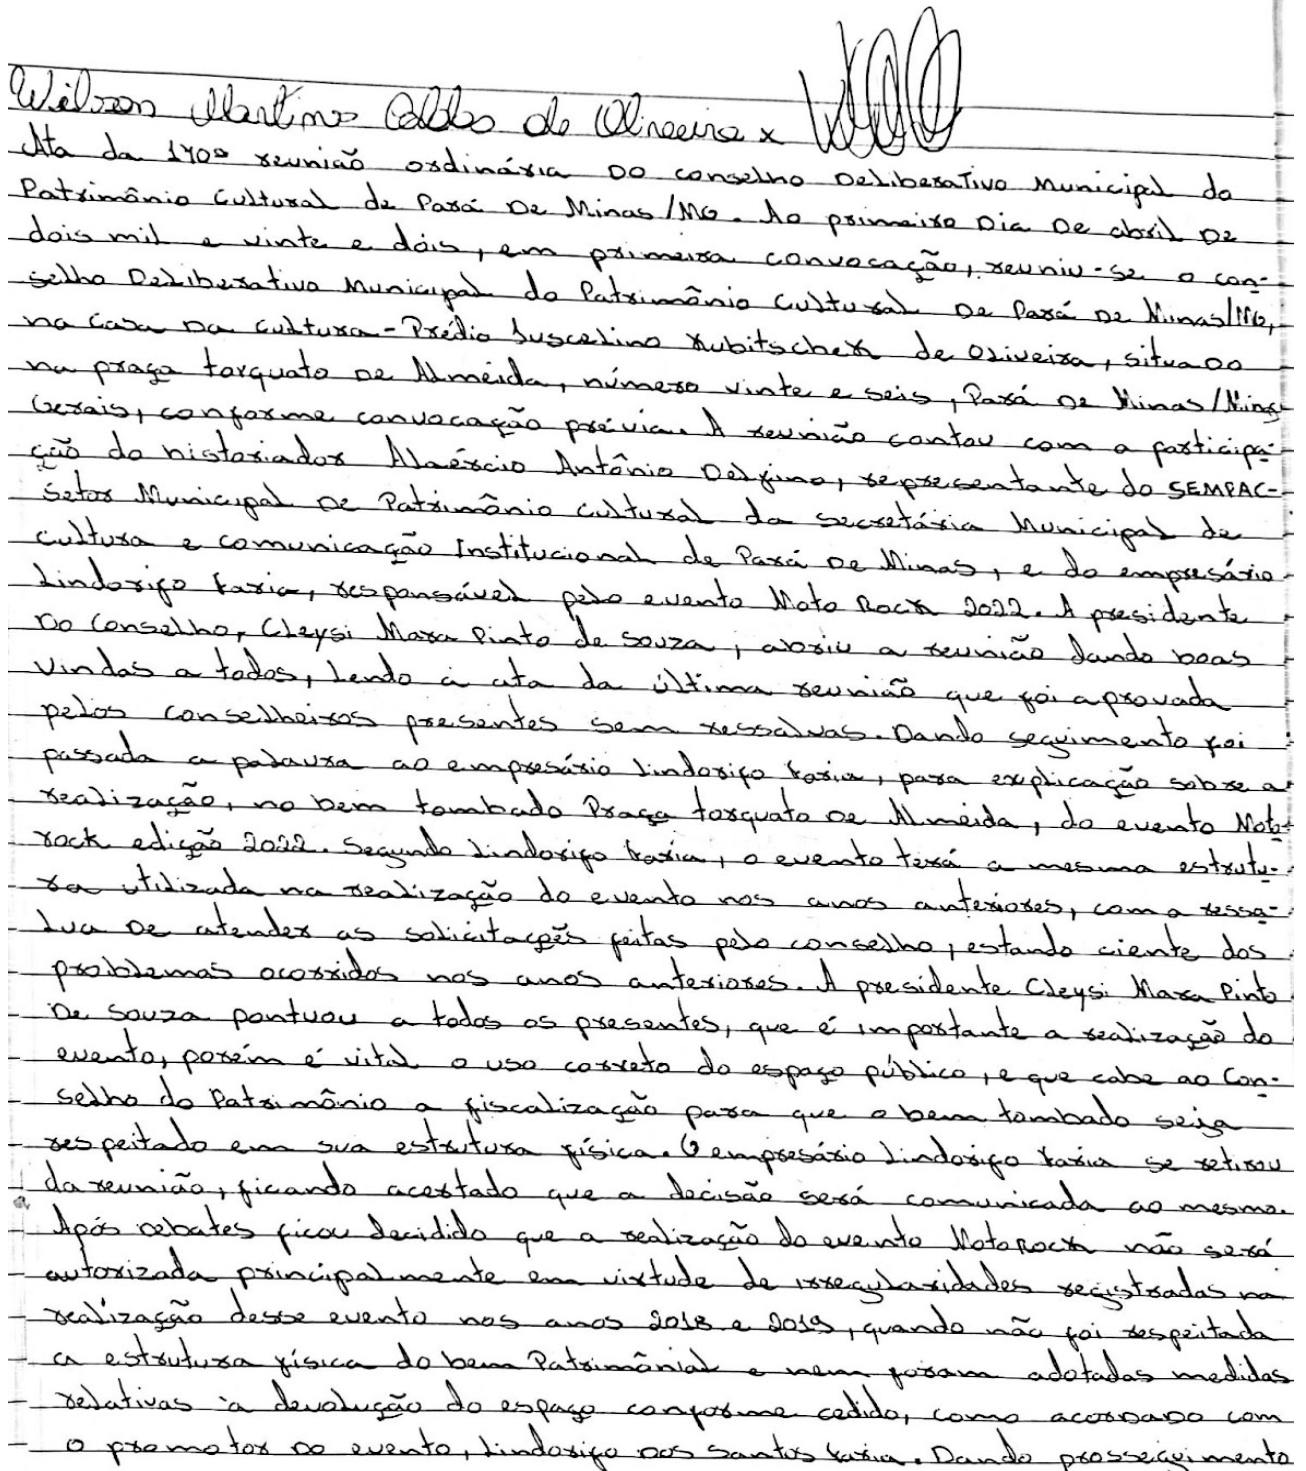 Wilson Martins Caldas de Oliveira x
Ata da 170ª reunião ordinária do conselho Deliberativo Municipal do
Patrimônio Cultural de Pará De Minas/MG. Ao primeiro Dia De abril De
dois mil e vinte e dois, em primeira convocação, reuniu-se o con-
selho Deliberativo Municipal do Patrimônio Cultural De Pará De Minas/MG,
na Casa Da Cultura - Prédio Juscelino Kubitschek de Oliveira, situado
na praça torquato De Almeida, número vinte e seis, Pará De Minas/Minas
Gerais, conforme convocação prévia. A reunião contou com a participa-
ção do historiador Alaércio Antônio Delfino, representante do SEMPAC-
Setor Municipal De Patrimônio cultural da secretária Municipal de
cultura e comunicação Institucional de Pará De Minas, e do empresário
Lindorifo Faria, responsável pelo evento Moto Rock 2022. A presidente
Do Conselho, Cleysi Mara Pinto de Souza, abriu a reunião dando boas
vindas a todos, lendo a ata da última reunião que foi aprovada
pelos conselheiros presentes sem ressalvas. Dando seguimento foi
passada a palavra ao empresário Lindorifo Faria, para explicação sobre a
realização, no bem tombado Praça torquato De Almeida, do evento Moto-
rock edição 2022. Segundo Lindorifo Faria, o evento terá a mesma estrutu-
ra utilizada na realização do evento nos anos anteriores, com a ressa-
lva De atender as solicitações feitas pelo conselho, estando ciente dos
problemas ocorridos nos anos anteriores. A presidente Cleysi Mara Pinto
De Souza pontuou a todos os presentes, que é importante a realização do
evento, porém é vital o uso correto do espaço público, e que cabe ao Con-
selho do Patrimônio a fiscalização para que o bem tombado seja
respeitado em sua estrutura física. O empresário Lindorifo Faria se retirou
da reunião, ficando acertado que a decisão será comunicada ao mesmo.
Após debates ficou decidido que a realização do evento MotoRock não será
autorizada principalmente em virtude de irregularidades registradas na
realização desse evento nos anos 2018 e 2019, quando não foi respeitada
a estrutura física do bem Patrimônial e nem foram adotadas medidas
relativas à devolução do espaço conforme cedido, como acordado com
o promotor do evento, Lindorifo dos Santos Faria. Dando prosseguimento